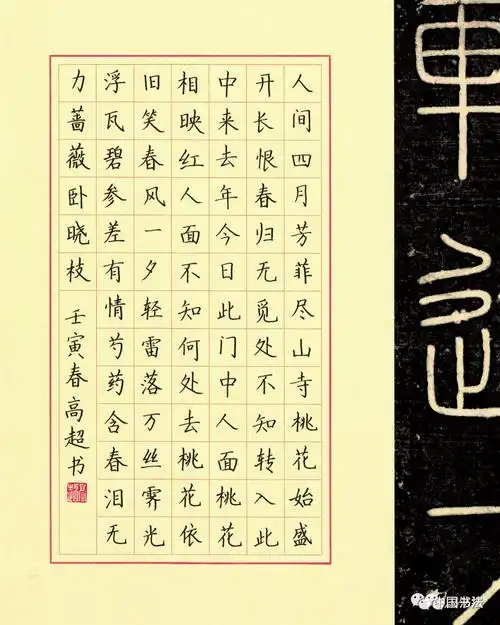 人间四月芳菲尽山寺桃花始盛
开长恨春归无觅处不知转入此
中来去年今日此门中人面桃花
相映红人面不知何处去桃花依
旧笑春风一夕轻雷落万丝霁光
浮瓦碧参差有情芍药含春泪无
力蔷薇卧晓枝
壬寅春高超书
中国书法